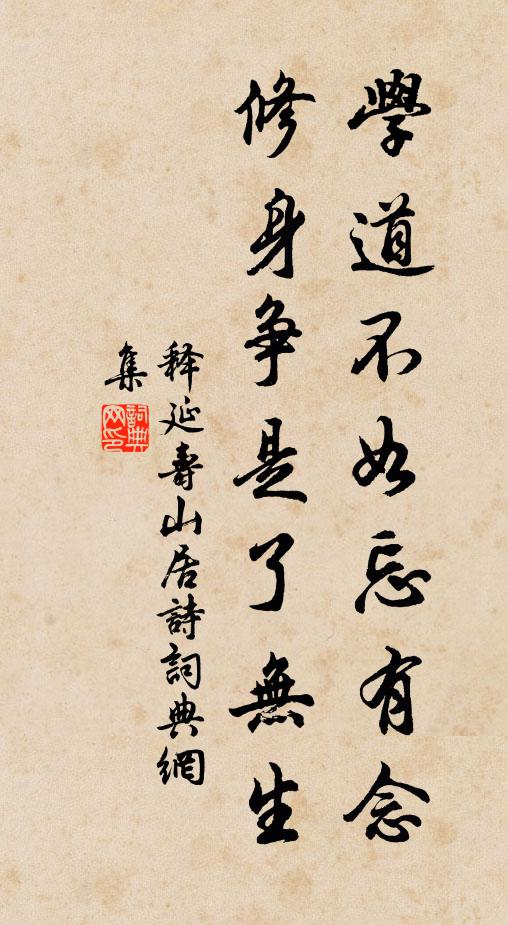 學道不如忘有念
修身争是了無生
釋延壽山居詩詞典網
集
詞典網印